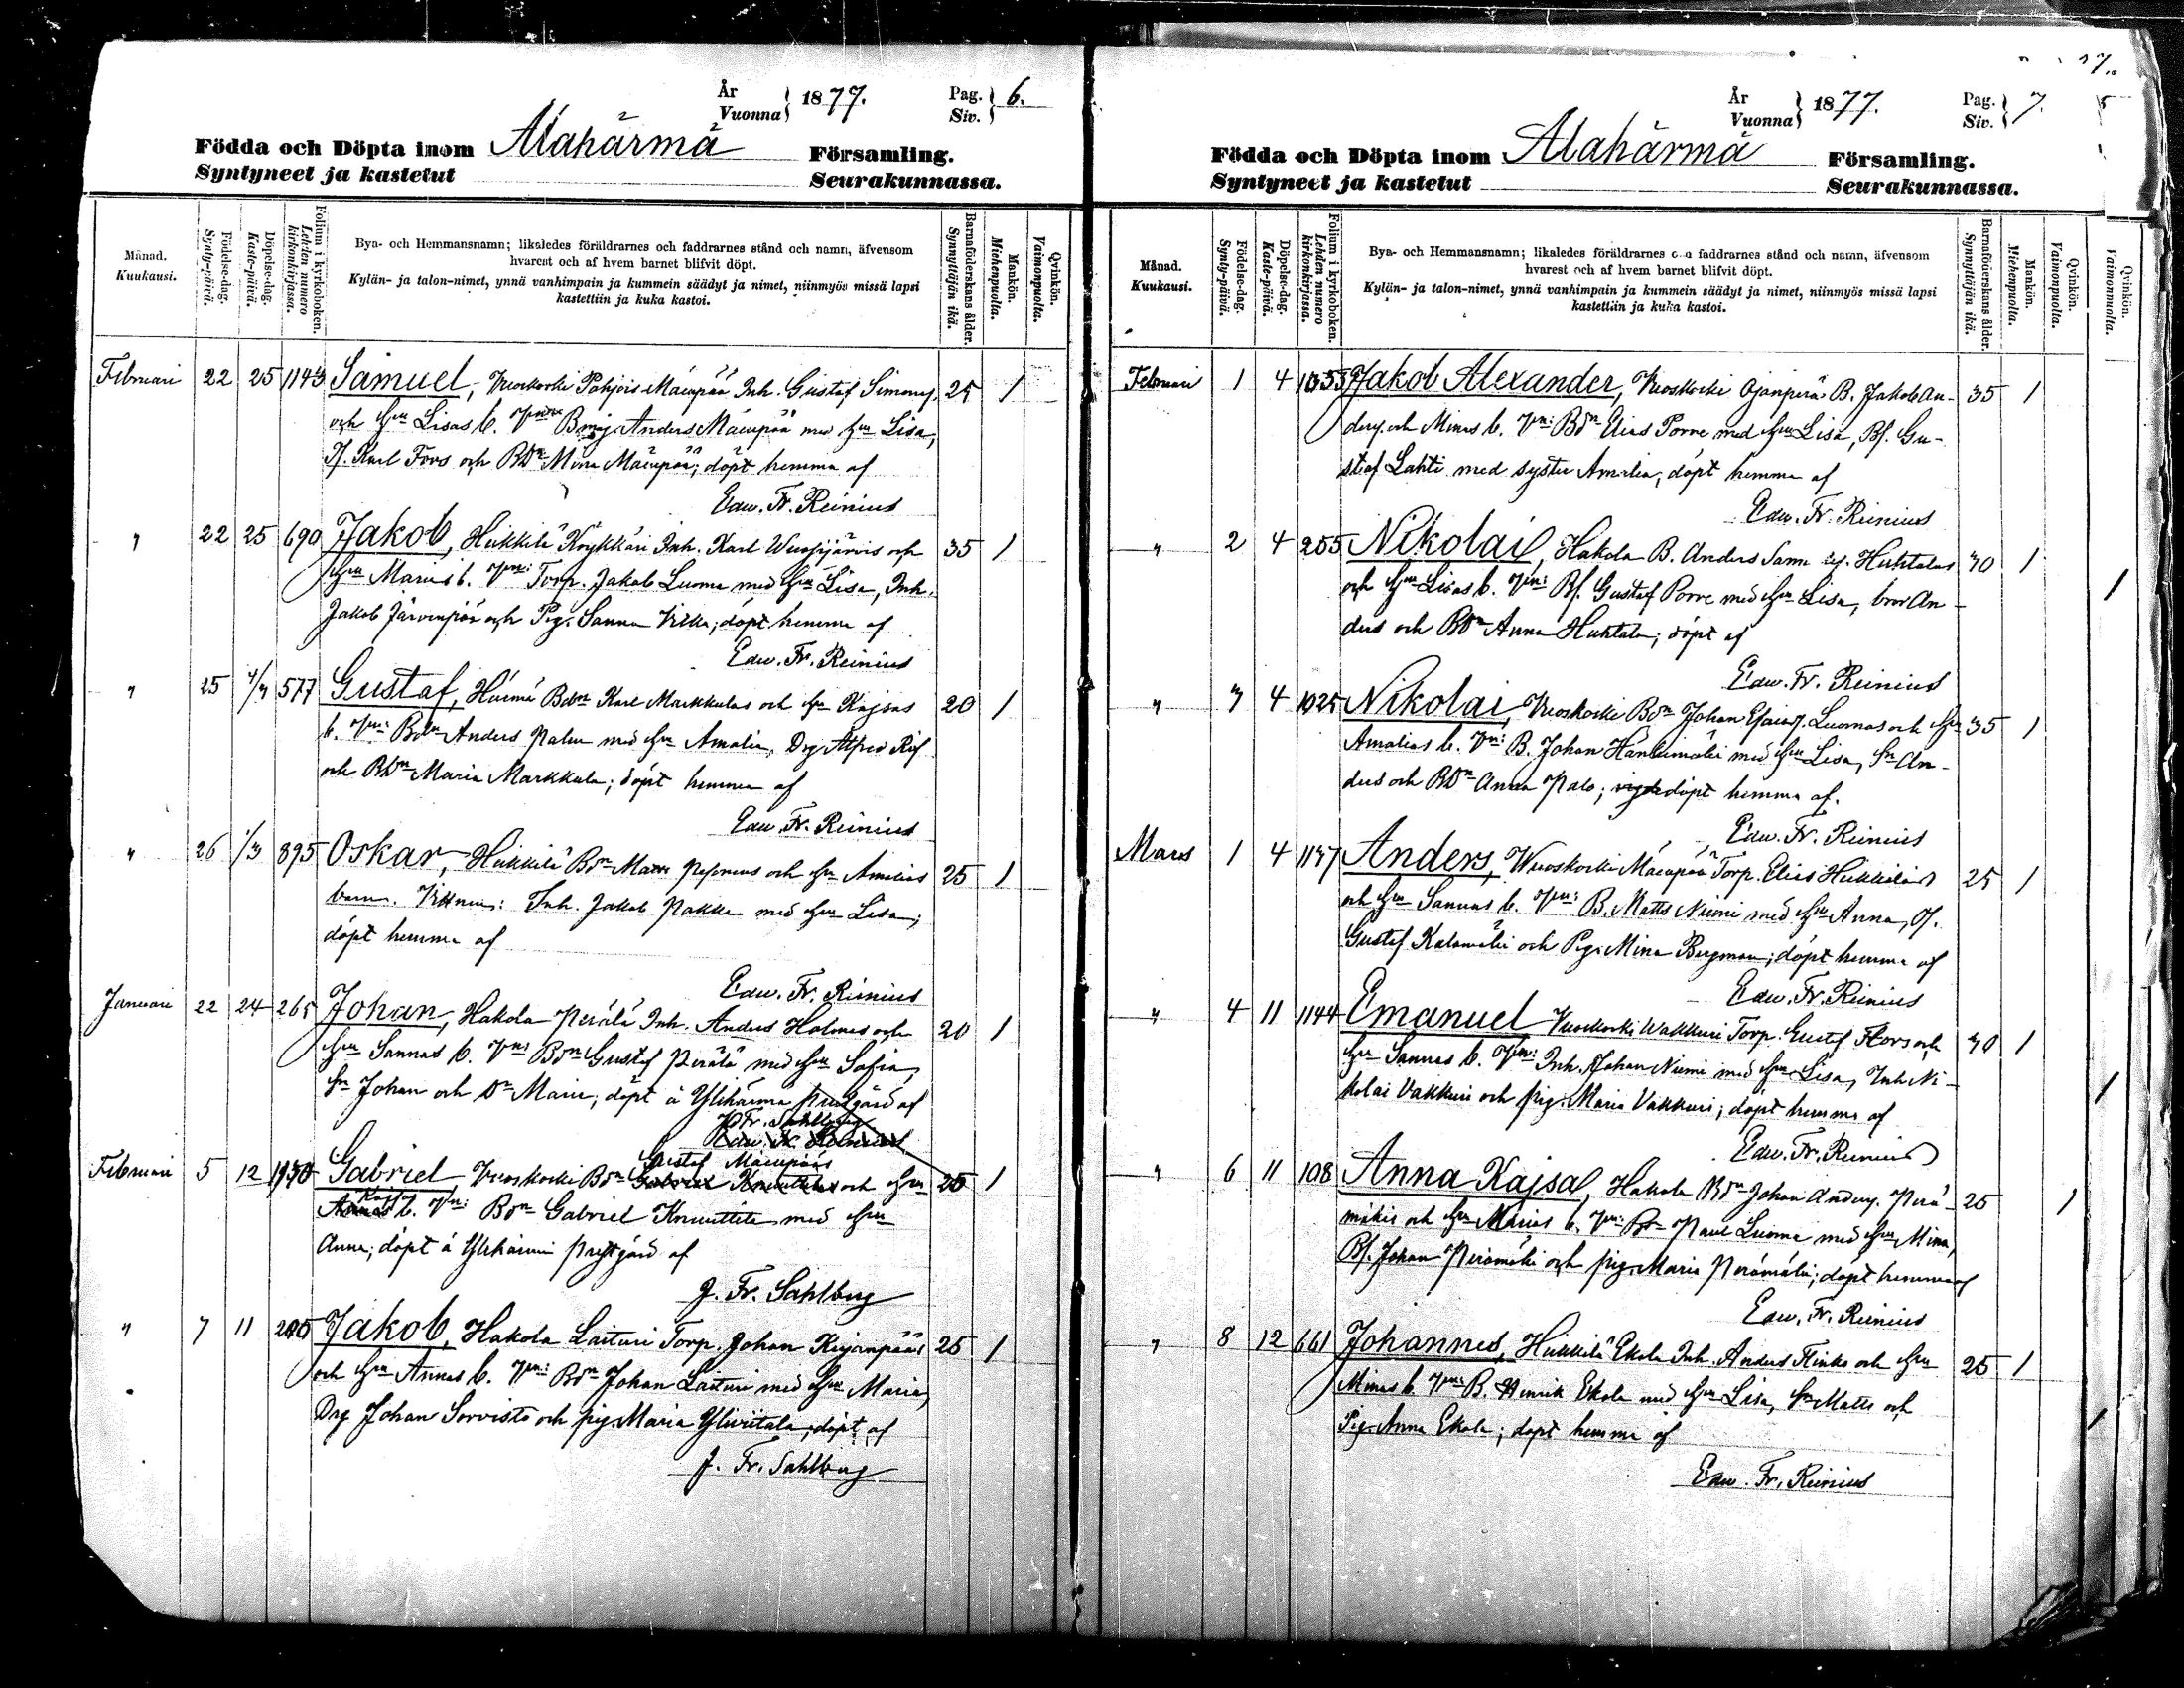 År
Vuonna } 1877. Pag. Siv. } 6.
Födda och Döpta inom Alahärmä Församling.
Syntyneet ja kastetut Seurakunnassa.
Månad. Kuukausi.
Födelse-dag. Synty-päivä.
Döpelse-dag. Kaste-päivä.
Folium i kyrkoboken. Lehden numero kirkonkirjassa.
Bya- och Hemmansnamn; likaledes föräldrarnes och faddrarnes stånd och namn, äfvensom
hvarest och af hvem barnet blifvit döpt.
Kylän- ja talon-nimet, ynnä vanhimpain ja kummein säädyt ja nimet, niinmyös missä lapsi
kastettiin ja kuka kastoi.
Barnaföderskans ålder. Synnyttäjän ikä.
Mankön. Miehenpuolta.
Qvinkön. Vaimonpuolta.
Februari 22 25 1143 Samuel, Wuoskoski Pohjois Mäenpää Inh. Gustaf Simons. 25 1
och hu Lisas b. Vn: Anders Mäenpää med hu Lisa,
Karl Fors och BDr Mina Mäenpää; döpt hemma af
Edw. Fr. Reinius
" 22 25 690 Jakob, Hukkila Köykkäri Inh. Karl Wuosijärvis och 35 1
hu Marias b. Vn: Torp. Jakob Luoma med hu Lisa, Inh.
Jakob Järvenpää och Pig. Sanna Vilka; döpt hemma af
Edw. Fr. Reinius
" 25 4/3 577 Gustaf, Härmä Bdn Karl Markkulas och hu Kajsas 20 1
b. Vn: Bdn Anders Palm med hu Amalia, Dg Alfred
och BDr Maria Markkula; döpt hemma af
Edw. Fr. Reinius
" 26 1/3 895 Oskar, Hukkila Bdn Matts och hu Amalias 25 1
barn. Vittnen: Inh. Jakob Pakka med hu Lisa;
döpt hemma af
Edw. Fr. Reinius
Januari 22 24 265 Johan, Hakola Perälä Inh. Anders Holmes och 20 1
hu Sannas b. Vn: Bdn Gustaf Perälä med hu Sofia,
Sn Johan och Dr Maria; döpt å Ylihärmä prestgård af
J. Fr. Sahlberg
Edw. Fr. Reinius
Gustaf Mäenpääs
Februari 5 12 Gabriel, Wuoskoski Bdn Gabriel Knuuttilas och hu 25 1
Kajsas
Annas b. Vn: Bdn Gabriel Knuuttila med hu
Anna; döpt å Ylihärmä prestgård af
J. Fr. Sahlberg
" 7 11 205 Jakob, Hakola Laituri Torp. Johan Kejonpääs 25 1
och hu Annas b. Vn: Bdn Johan Laituri med hu Maria,
Drg Johan Sorvisto och pig. Maria Yliviitala, döpt af
J. Fr. Sahlberg
År
Vuonna } 1877. Pag. Siv. } 7.
Födda och Döpta inom Alahärmä Församling.
Syntyneet ja kastetut Seurakunnassa.
Månad. Kuukausi.
Födelse-dag. Synty-päivä.
Döpelse-dag. Kaste-päivä.
Folium i kyrkoboken. Lehden numero kirkonkirjassa.
Bya- och Hemmansnamn; likaledes föräldrarnes och faddrarnes stånd och namn, äfvensom
hvarest och af hvem barnet blifvit döpt.
Kylän- ja talon-nimet, ynnä vanhimpain ja kummein säädyt ja nimet, niinmyös missä lapsi
kastettiin ja kuka kastoi.
Barnaföderskans ålder. Synnyttäjän ikä.
Mankön. Miehenpuolta.
Qvinkön. Vaimonpuolta.
Qvinkön. Vaimonpuolta.
Februari 1 4 1055 Jakob Alexander, Wuoskoski Ojanperä B. Jakob An- 35 1
ders. och Minas b. Vn: Bdn Elias Porre med hu Lisa, Bs. Gu-
staf Lahti med syster Amalia, döpt hemma af
Edw. Fr. Reinius
" 2 4 255 Nikolai, Hakola B. Anders Huhtalas 30 1
och hu Lisas b. Vn: Bs. Gustaf Porre med hu Lisa, bror An-
ders och BDr Anna Huhtala; döpt af
Edw. Fr. Reinius
" 3 4 1025 Nikolai, Wuoskoski Bdn Johan Esaias. Luomas och hu 35 1
Amalias b. Vn: B. Johan Hanhimäki med hu Lisa, Sn An-
ders och BDr Anna Palo; döpt hemma af.
Edw. Fr. Reinius
Mars 1 4 1137 Anders, Wuoskoski Mäenpää Torp. Elias Hukkilas 25 1
och hu Sannas b. Vn: B. Matts Niemi med hu Anna,
Gustaf Kalamäki och Pig. Mina Bergman; döpt hemma af
Edw. Fr. Reinius
" 4 11 1144 Emanuel Wuoskoski Wakkuri Torp. Gustaf Fors och 30 1
hu Sannas b. Vn: Inh. Johan Niemi med hu Lisa, Inh. Ni-
kolai Vakkuri och pig. Maria Vakkuri; döpt hemma af
Edw. Fr. Reinius
" 6 11 108 Anna Kajsa, Hakola Bdn Johan Anders. Perä- 25 1
mäkis och hu Marias b. Vn: Bdn Paul Luoma med hu Mina,
Bs. Johan Perämäki och pig. Maria Perämäki; döpt hemma af
Edw. Fr. Reinius
" 8 12 661 Johannes, Hukkila Ekola Inh. Anders Flinks och hu 25 1
Minas b. Vn: B. Henrik Ekola med hu Lisa, Sn Matts och
Pig. Anna Ekola; döpt hemma af
Edw. Fr. Reinius